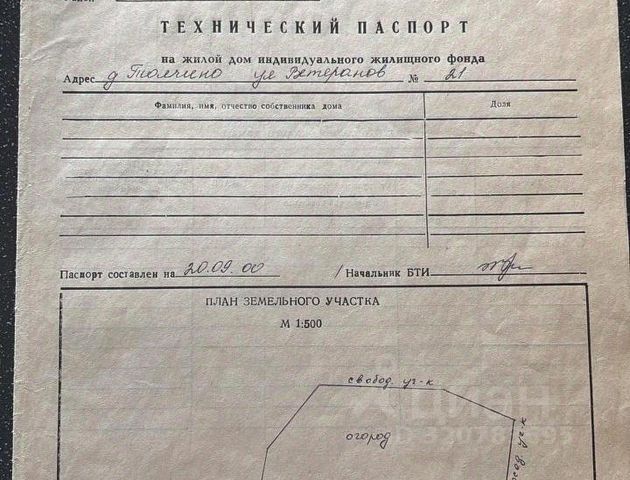 ТЕХНИЧЕСКИЙ ПАСПОРТ
на жилой дом индивидуального жилищного фонда
Адрес д Толчино ул Ветеранов № 21
Фамилия, имя, отчество собственника дома Доля
Паспорт составлен на 20.09.00 / Начальник БТИ
ПЛАН ЗЕМЕЛЬНОГО УЧАСТКА
М 1:500
свобод. уч-к
огород